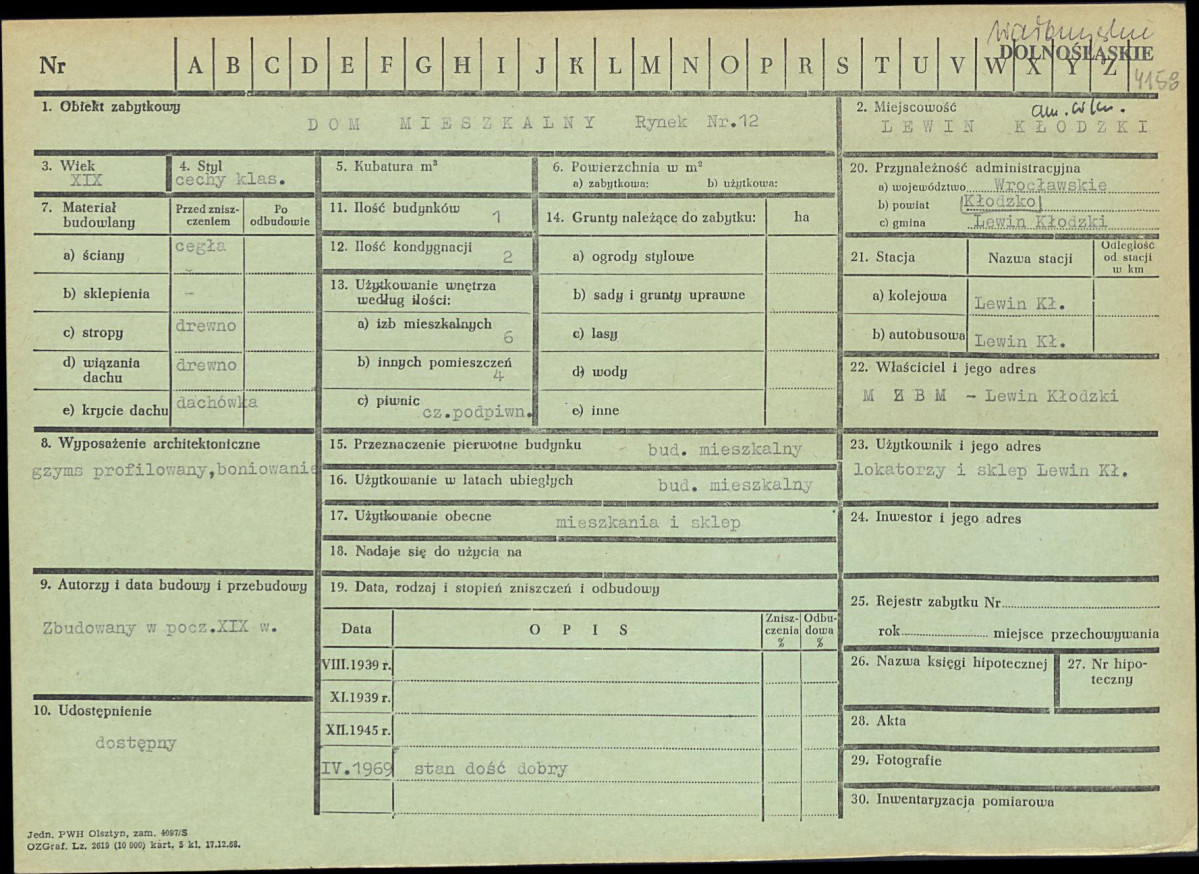 Wałbrzyskie
DOLNOŚLĄSKIE
4158
Nr A B C D E F G H I J K L M N O P R S T U V W X Y Z
1. Obiekt zabytkowy
DOM MIESZKALNY Rynek Nr.12
2. Miejscowość
LEWIN KŁODZKI
3. Wiek
XIX
4. Styl
cechy klas.
5. Kubatura m³
6. Powierzchnia w m²
a) zabytkowa: b) użytkowa:
20. Przynależność administracyjna
a) województwo Wrocławskie
b) powiat Kłodzko
c) gmina Lewin Kłodzki
7. Materiał budowlany
Przed zniszczeniem
Po odbudowie
a) ściany cegła
b) sklepienia –
c) stropy drewno
d) wiązania dachu drewno
e) krycie dachu dachówka
11. Ilość budynków 1
12. Ilość kondygnacji 2
13. Użytkowanie wnętrza według ilości:
a) izb mieszkalnych 6
b) innych pomieszczeń 4
c) piwnic cz.podpiwn.
14. Grunty należące do zabytku: ha
a) ogrody stylowe
b) sady i grunty uprawne
c) lasy
d) wody
e) inne
21. Stacja
Nazwa stacji
Odległość od stacji w km
a) kolejowa Lewin Kł.
b) autobusowa Lewin Kł.
22. Właściciel i jego adres
M Z B M - Lewin Kłodzki
8. Wyposażenie architektoniczne
gzyms profilowany,boniowanie
15. Przeznaczenie pierwotne budynku bud. mieszkalny
16. Użytkowanie w latach ubiegłych bud. mieszkalny
17. Użytkowanie obecne mieszkania i sklep
18. Nadaje się do użycia na
23. Użytkownik i jego adres
lokatorzy i sklep Lewin Kł.
24. Inwestor i jego adres
9. Autorzy i data budowy i przebudowy
Zbudowany w pocz.XIX w.
19. Data, rodzaj i stopień zniszczeń i odbudowy
Data
OPIS
Zniszczenia %
Odbudowa %
VIII.1939 r.
XI.1939 r.
XII.1945 r.
IV.1969 stan dość dobry
25. Rejestr zabytku Nr
rok miejsce przechowywania
26. Nazwa księgi hipotecznej
27. Nr hipoteczny
10. Udostępnienie
dostępny
28. Akta
29. Fotografie
30. Inwentaryzacja pomiarowa
Jedn. PWH Olsztyn, zam. 4097/S
OZGraf. Lz. 2619 (10 000) kart, 5 kl. 17.12.68.